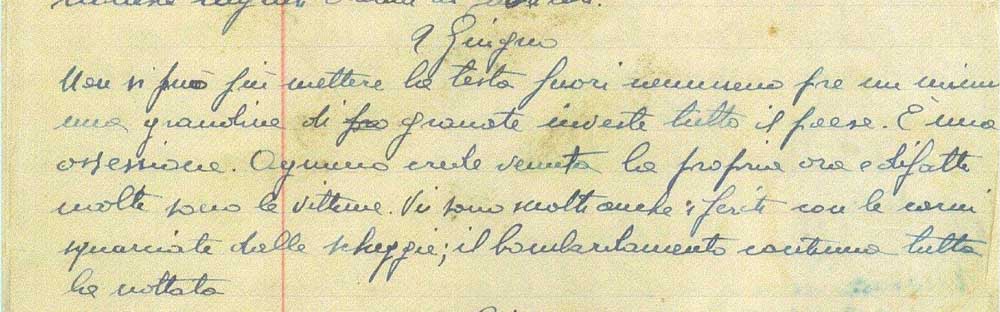 9 Giugno
Non si può più mettere la testa fuori nemmeno per un minu
una grandine di gra granate investe tutto il paese. È una
ossessione. Ognuno crede venuta la propria ora e difatti
molte sono le vittime. Vi sono molti anche i feriti con le carni
squarciate dalle scheggie; il bombardamento continua tutta
la nottata